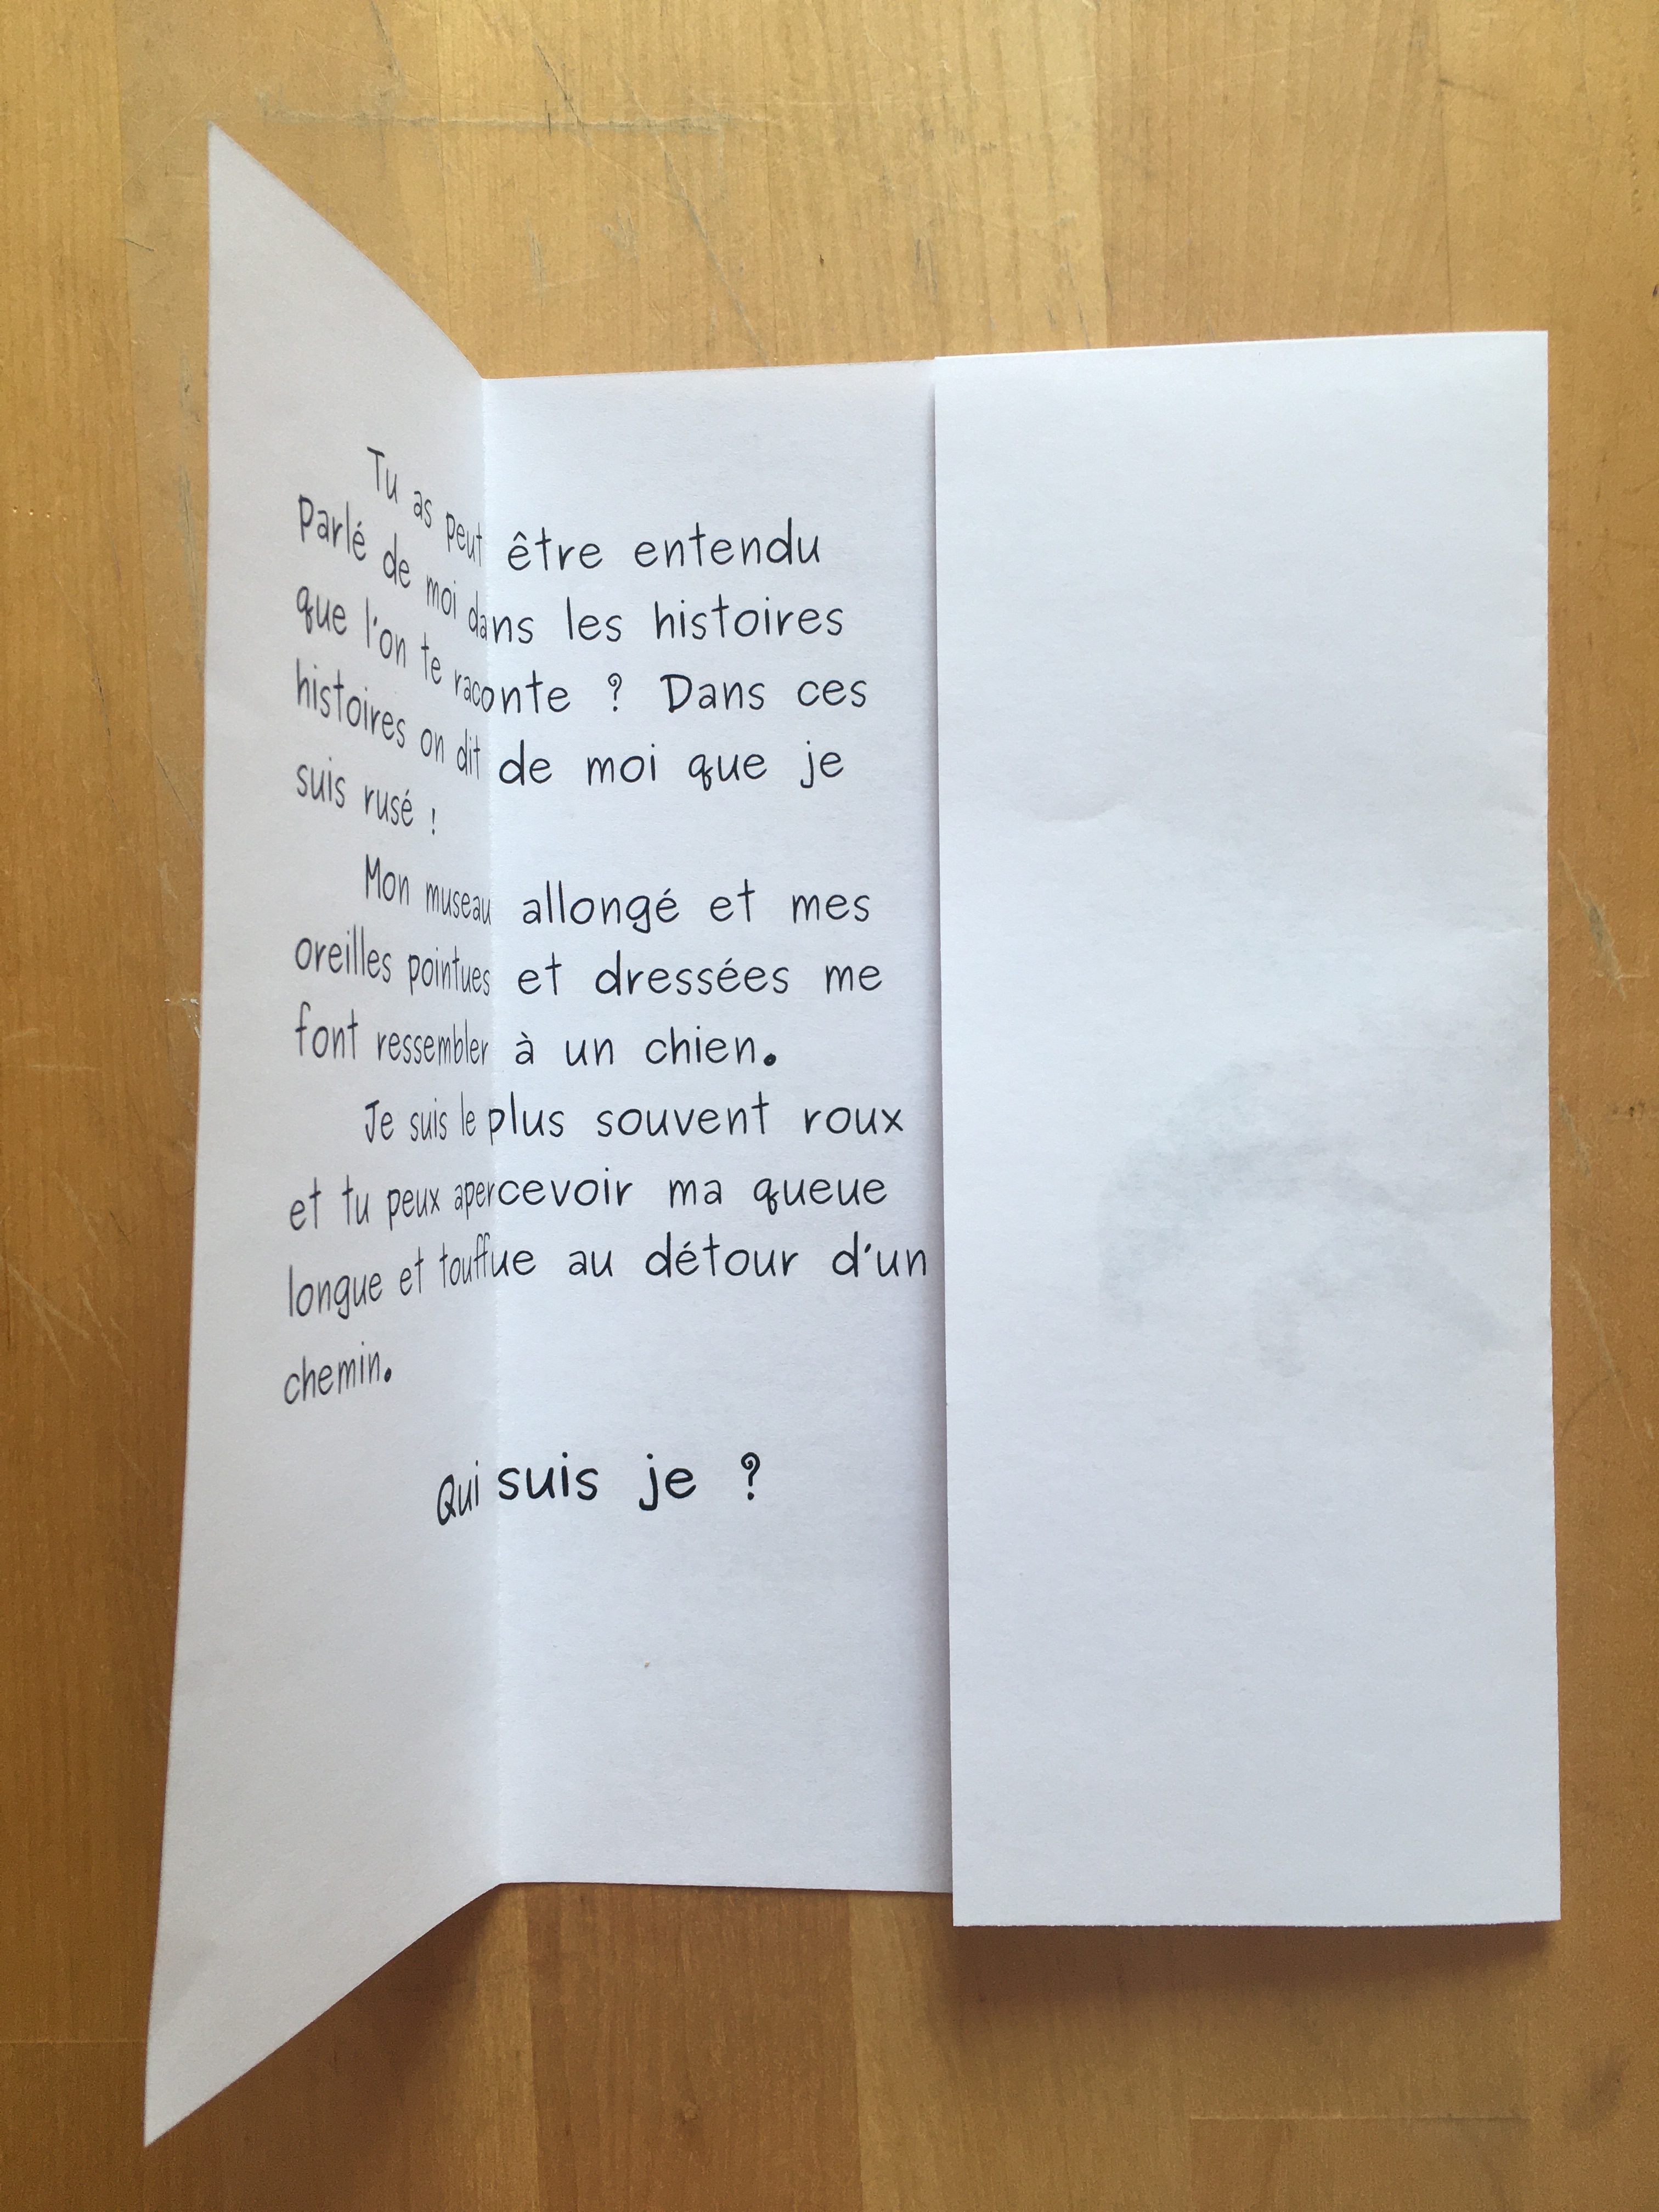 Tu as peut être entendu
Parlé de moi dans les histoires
que l'on te raconte ? Dans ces
histoires on dit de moi que je
suis rusé !
Mon museau allongé et mes
oreilles pointues et dressées me
font ressembler à un chien.
Je suis le plus souvent roux
et tu peux apercevoir ma queue
longue et touffue au détour d'un
chemin.
Qui suis je ?